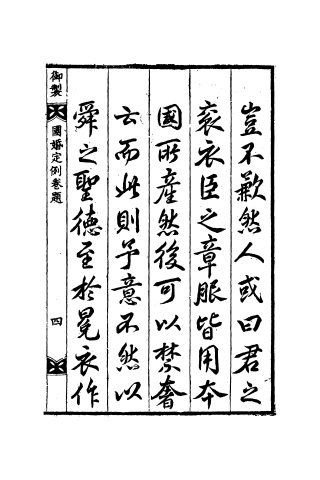 豈不歉然人或曰君之
衮衣臣之章服皆用本
國所產然後可以禁奢
云而此則予意不然以
舜之聖德至於冕衣作
御製
國婚定例卷題
四